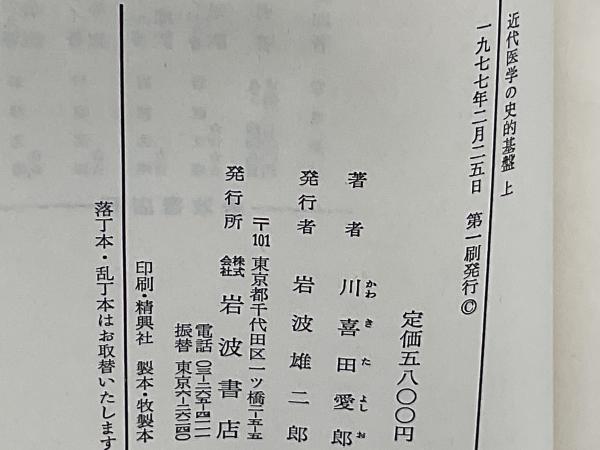 近代医学の史的基盤 上
一九七七年二月二五日 第一刷発行©
定価五八〇〇円
著者 川喜田愛郎
かわきたよしお
発行者 岩波雄二郎
〒101 東京都千代田区一ツ橋二-五-五
発行所 株式会社 岩波書店
電話 〇三-二六五-四一一一
振替 東京六-二六二四〇
印刷・精興社 製本・牧製本
落丁本・乱丁本はお取替いたします